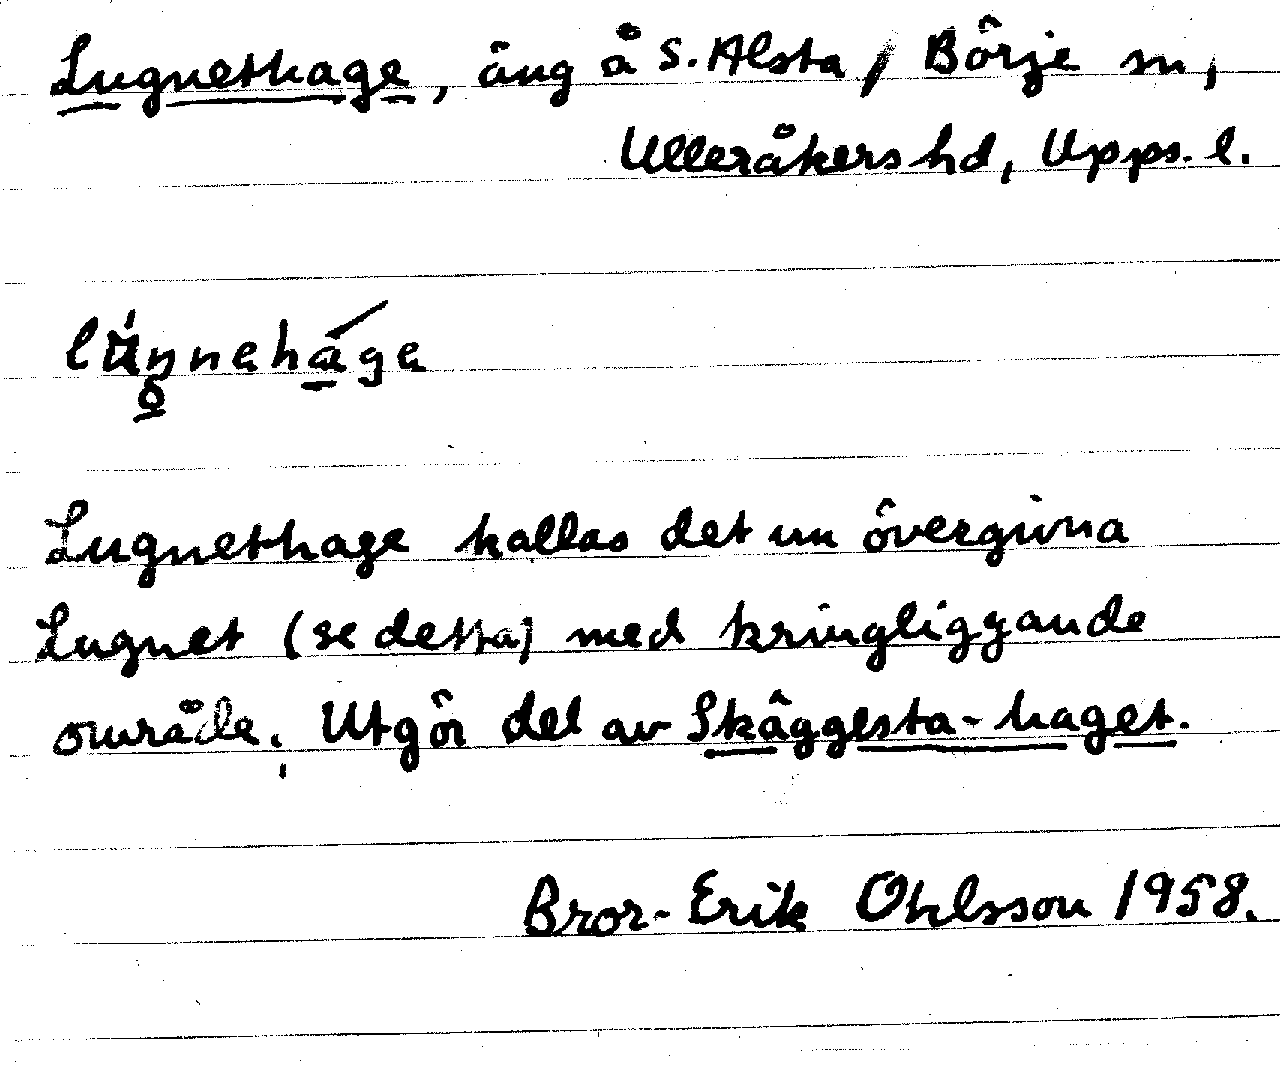 Lugnethage, äng å S. Alsta, Börje sn,
Ulleråkers hd, Upps. l.
Lugnethage kallas det nu övergivna
Lugnet (se detta) med kringliggande
område. Utgör del av Skäggesta-haget.
Bror-Erik Ohlsson 1958.